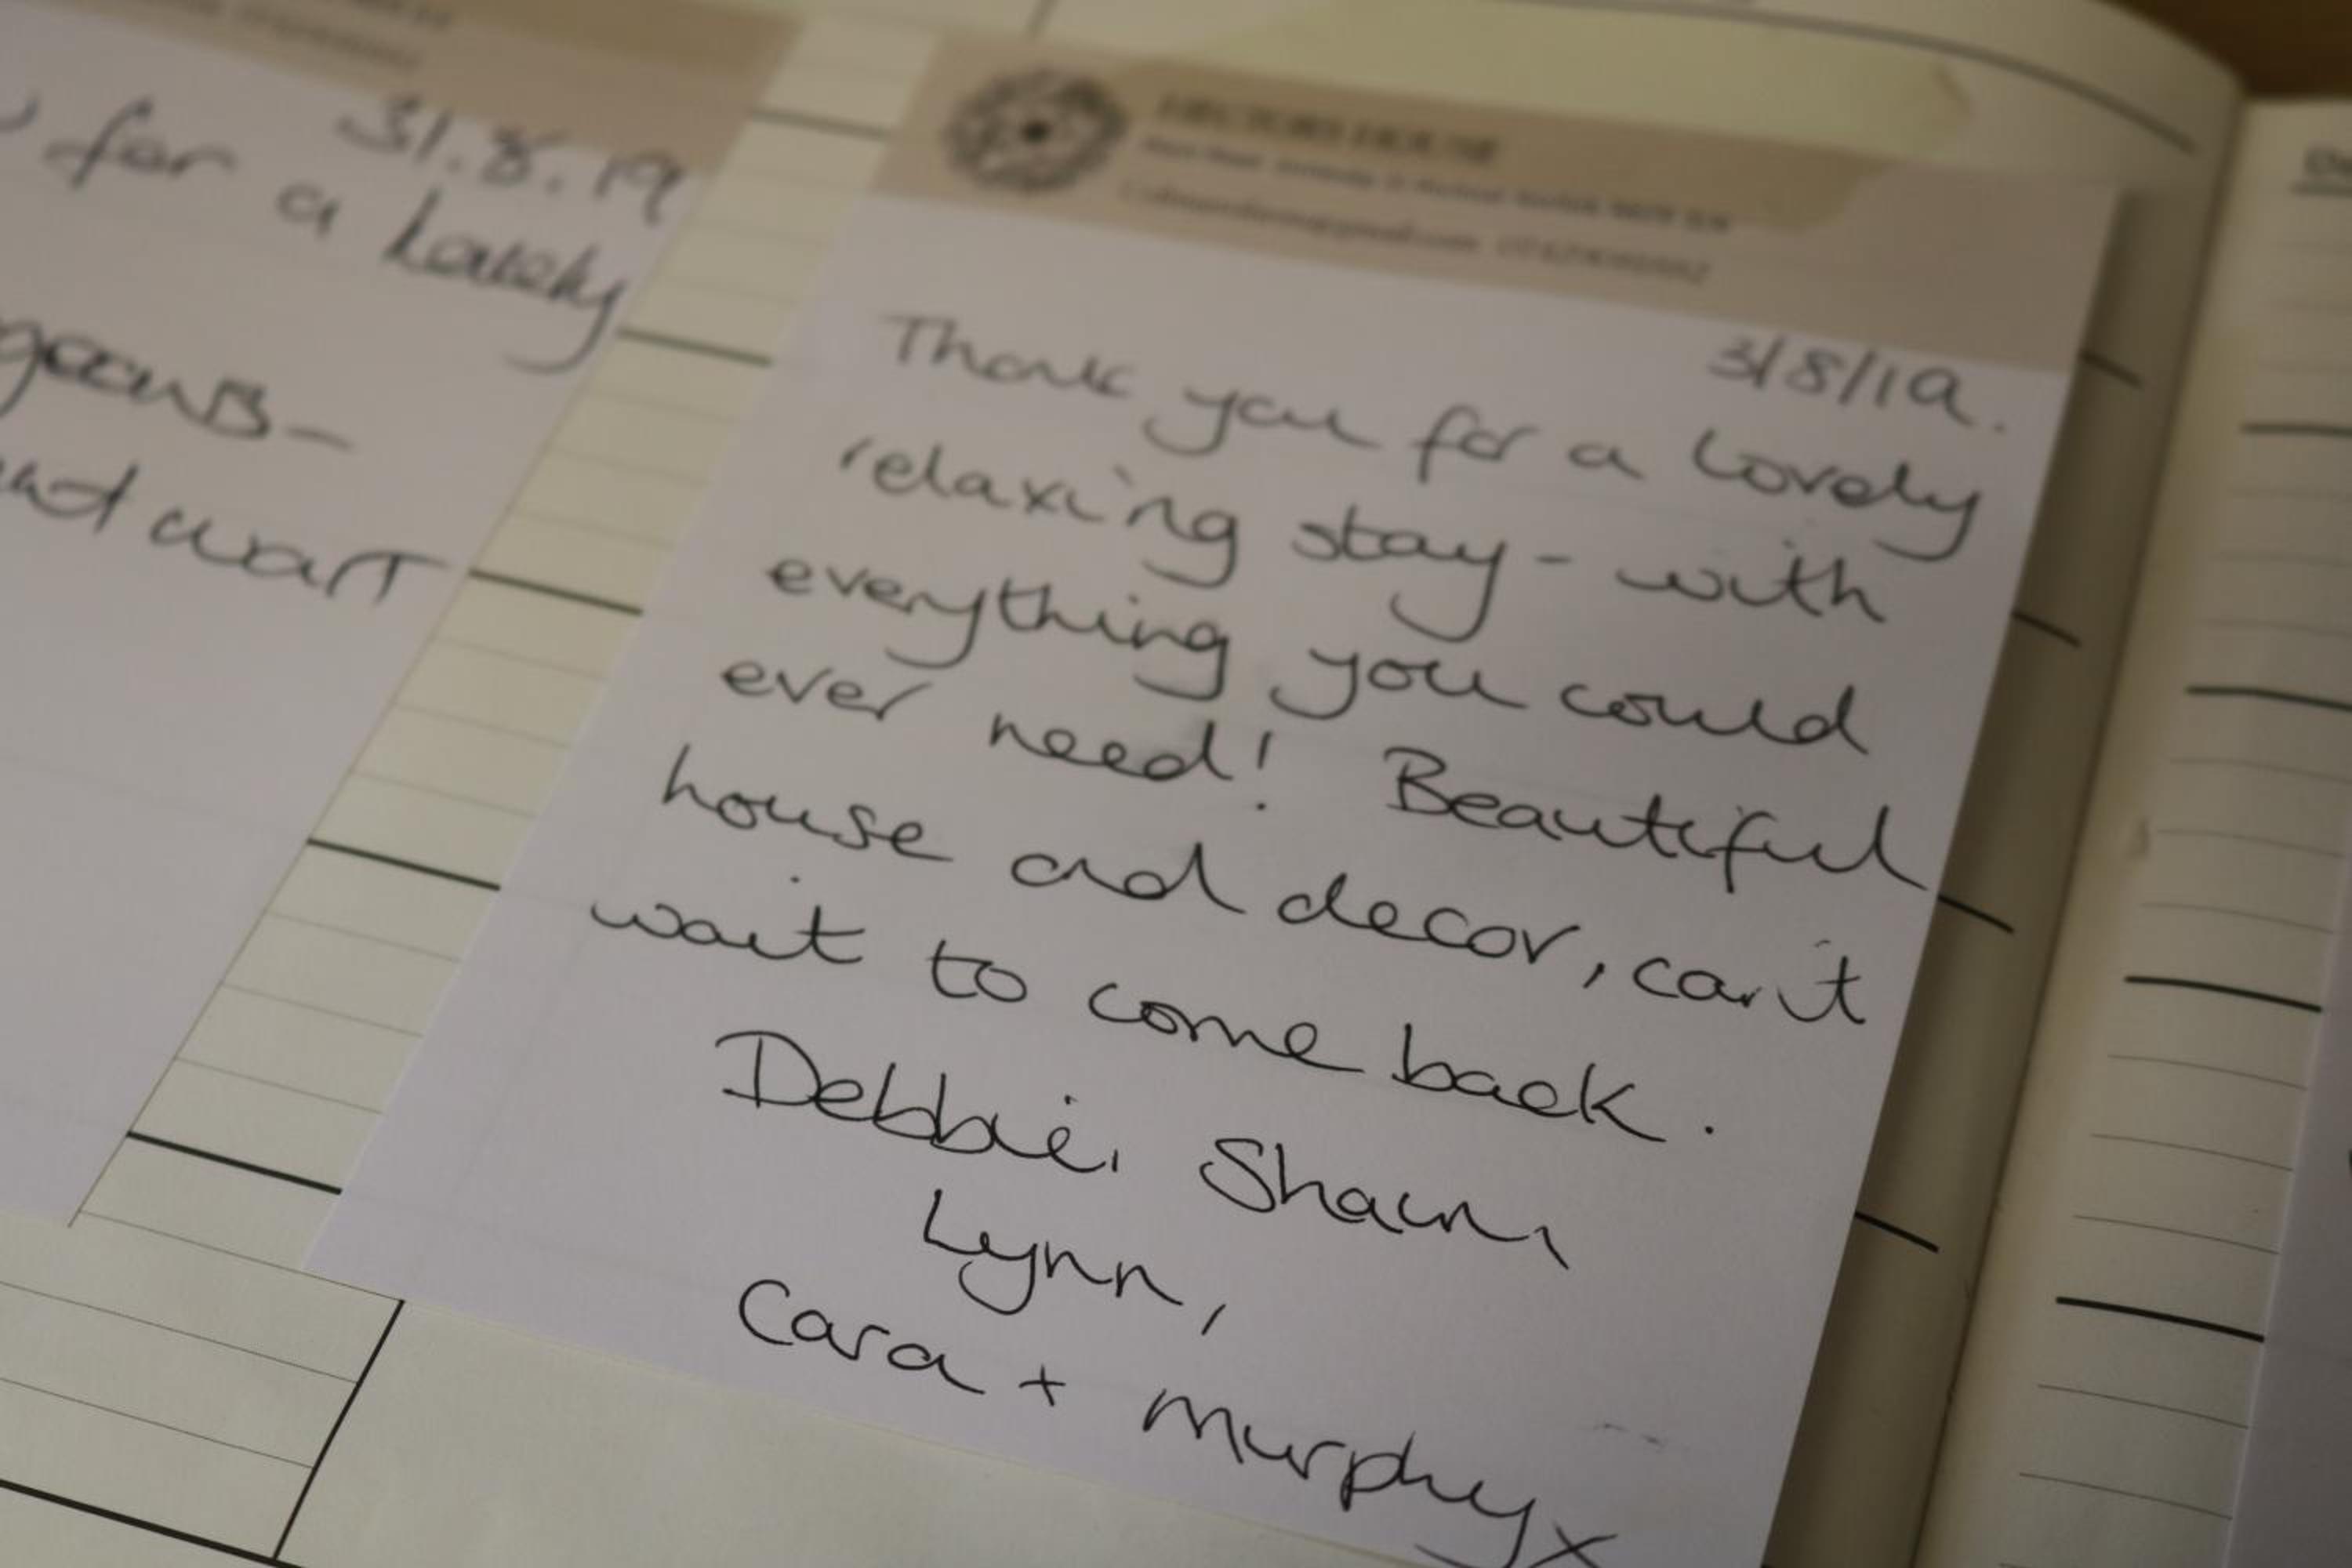 31.8.19
for a lovely
and wait
HECTORS HOUSE
3/8/19.
Thank you for a lovely
relaxing stay - with
everything you could
ever need! Beautiful
house and decor, can't
wait to come back.
Debbie, Shaun,
Lynn,
Cara + Murphy x